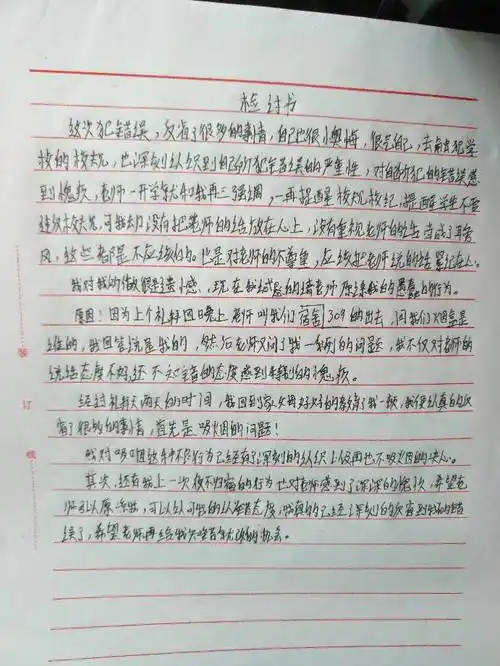 检讨书
这次犯错误,反省了很多的事情,自己也很懊悔,很气自己,去触犯学
校的校规,也深刻认识到自己所犯错误的严重性,对自己所犯的错误感
到愧疚,老师一开学就和我再三强调,一再提醒校规校纪,提醒学生不要
违反校规,可我却没有把老师的话放在心上,没有重视老师的话,当成了耳旁
风,这些都是不应该的。也是对老师的不尊重,应该把老师说的话紧记在心。
我对我的做很是遗憾,现在我诚恳的请老师原谅我的愚蠢的行为。
原因:因为上个礼拜四晚上老师叫我们宿舍309的出去,问我们烟是
谁的,我回答说是我的,然后老师又问了我一系列的问题,我不仅对老师的
说话态度不好,还不知错的态度感到深刻的愧疚。
经过礼拜六两天的时间,我回到家父母好好的教育了我一顿,我便认真的反
省了很多的事情,首先是吸烟的问题!
我对吸烟这种不良行为已经有了深刻的认识,
其次,还有我上一次夜不归宿的行为也对老师感到了深深的愧疚,希望老
师可以原谅,可以认可我的认错态度,我真的已经深刻的反省到我的错
误了,希望老师再给我
装
订
线